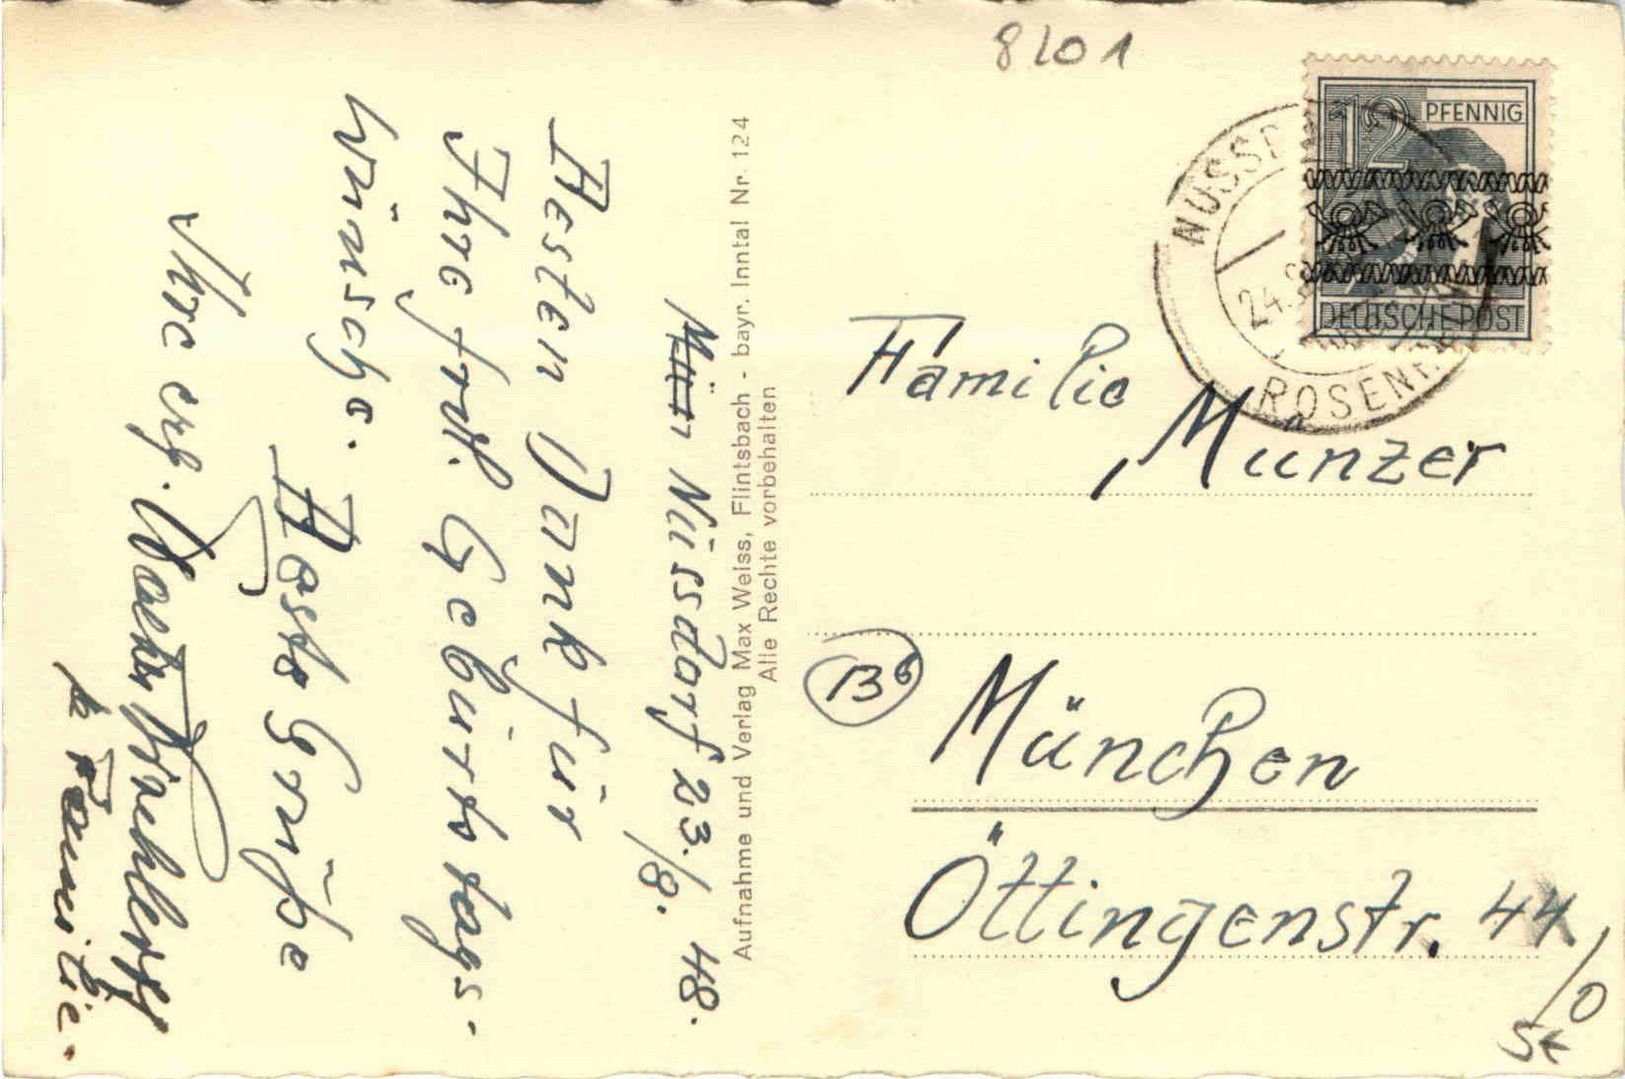 8201
12 PFENNIG
DEUTSCHE POST
NUSSD
24.8.
ROSENH.
Familie
Münzer
(13b)
München
Öttingenstr. 44
/0
St
Aufnahme und Verlag Max Weiss, Flintsbach - bayr. Inntal Nr. 124
Alle Rechte vorbehalten
Nüssdorf 23./8. 48.
Besten Dank für
Ihre frdl. Geburtstags-
wünsche. Beste Grüße
Ihre erg.
u Familie.